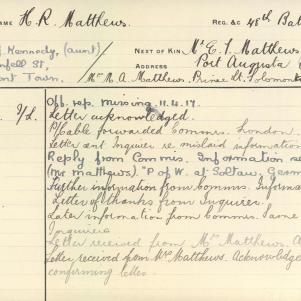 AME H. R. Matthews. REG. & C 48th Bat
Kennedy, (aunt) NEXT OF KIN Mr E. J. Matthews
nfell St, ADDRESS Port Augusta
nt Town. Mr R. A. Matthews, Prince St. Solomont
Off. rep. missing 11.4.17.
Letter acknowledged.
P/Cable forwarded Commrs. London
Letter ant Inquirer re mislaid information
Reply from Commrs. Information se
(Mr Matthews). "P of W. at Soltau, Germ
Further information from Commrs. Informe
Letter of thanks from Inquirer.
Later information from Commrs. Same
Inquirers
Letter received from Mrs Matthews. A
Letter received from Mrs Matthews. Acknowledge
confirming letter.